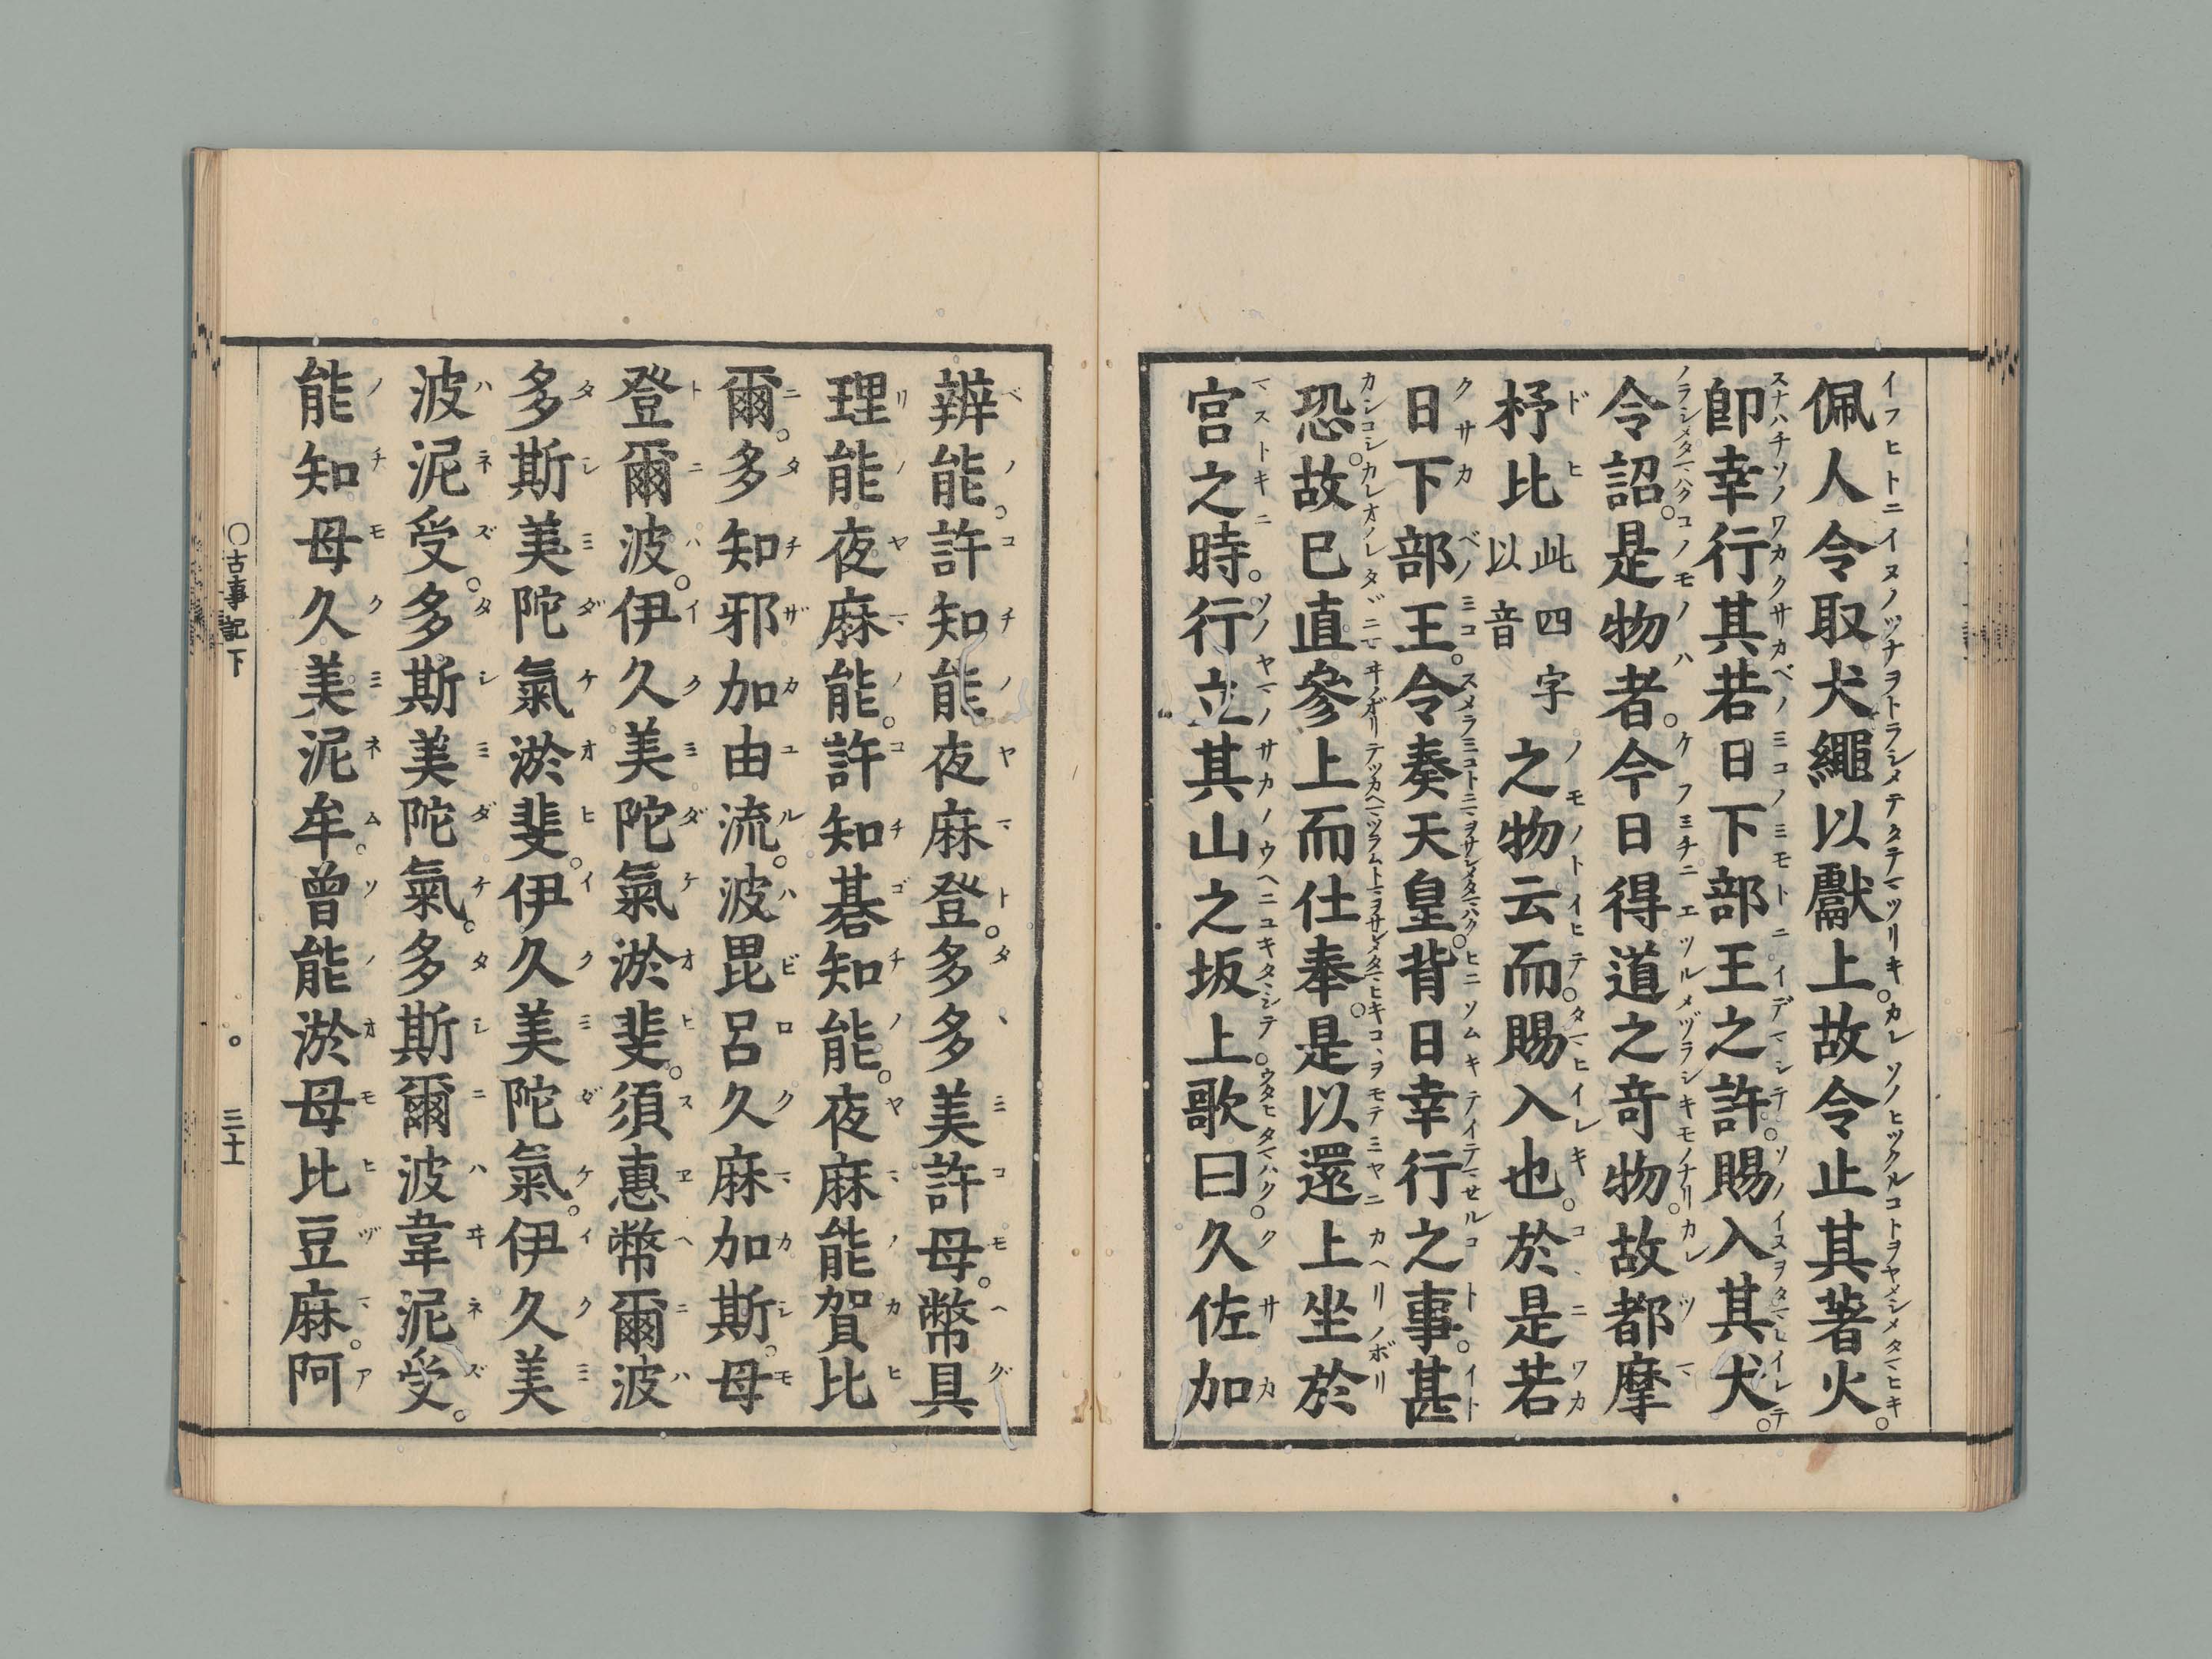 佩人令取犬繩以獻上。故令止其著火。
卽幸行其若日下部王之許。賜入其犬。
令詔。是物者。今日得道之奇物。故都摩
杼比此四字以音之物云而。賜入也。於是若
日下部王。令奏天皇。背日幸行之事。甚
恐。故已直參上而仕奉。是以還上坐於
宮之時。行立其山之坂上歌曰。久佐加
辨能。許知能夜麻登。多多美許母。幣具
理能夜麻能。許知碁知能。夜麻能賀比
爾。多知邪加由流。波毘呂久麻加斯。母
登爾波。伊久美陀氣淤斐。須惠幣爾波
多斯美陀氣淤斐。伊久美陀氣。伊久美
波泥受。多斯美陀氣。多斯爾波韋泥受。
能知母久美泥牟。曾能淤母比豆麻。阿
〇古事記下 三十